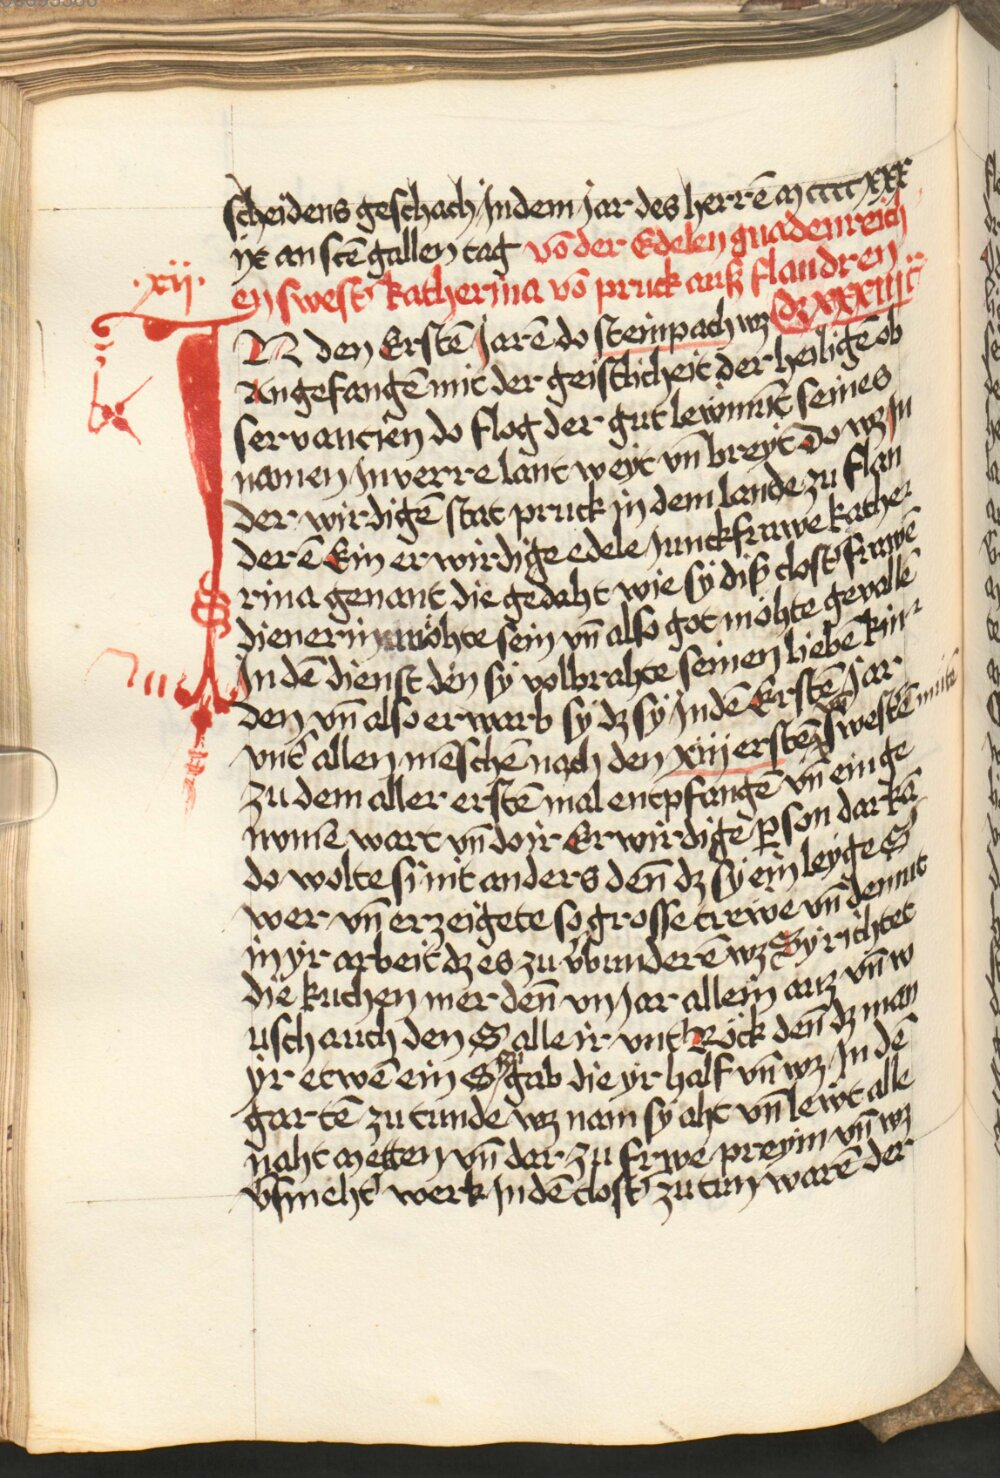 scheidens geschach Jn dem jar des herrē M cccc xxx
ix an sctē gallen tag vō der Edelen gnadenreich
.xii. en swest' katherina vō pruck auß flandren
IN den Erstē jarē do steinpach wz dz xxxiiii
Angefangē mit der geistlicheit der heiligē ob
servancien do flog der gut lewmūt seines
namen Jn verre lant weyt vn̄ breyt Do wz Jn
der wirdigē stat pruck jn dem lande zu flan
derē Ein er wirdige edele Junckfrawe kathe
rina genant die gedaht wie sy diß clost' frawē
dienerin möhte sein vn̄ also got möhte gevallē
Jn dē dienst den sy volbrahte seinen liebē kin
den vn̄ also erwarb sy dz sy Jn dē Erstē Jar
vnt' allen mēschē nach den xiii erstē swestē
zu dem aller erstē mal entpfangē vn̄ einge
nomē wart vn̄ do ir Erwirdige person dar kā
do wolte si nit anders den̄ dz sy ein leyge S
wer vn̄ erzeigete so grosse trewe vn̄ demut
in yr arbeit dz es zu v'wunderē wz Sy richtet
die kuchen mer den̄ vn jar allein auz vn̄ w
usch auch den S alle ir vnt' Röck den̄ dz man
yr etwē ein S zu gab die yr half vn̄ wz Jn dē
gartē zu tunde wz nam sy aht vn̄ lewt alle
naht Metten vn̄ dar zu frwe preym vn̄ wz
v'smeht' werk Jn dē clost' zu tun warē der